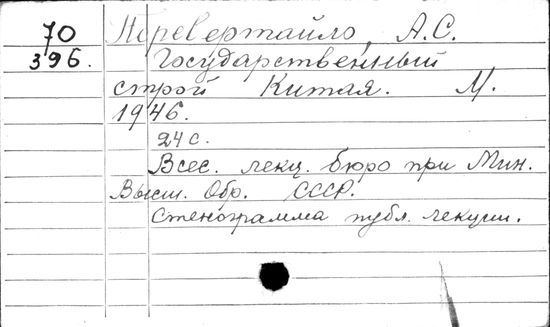 70 Перевертайло, А.С.
396. Государственный
строй Китая. М.
1946.
24 с.
Всес. лекц. бюро при Мин.
Высш. Обр. СССР.
Стенограмма публ. лекции.